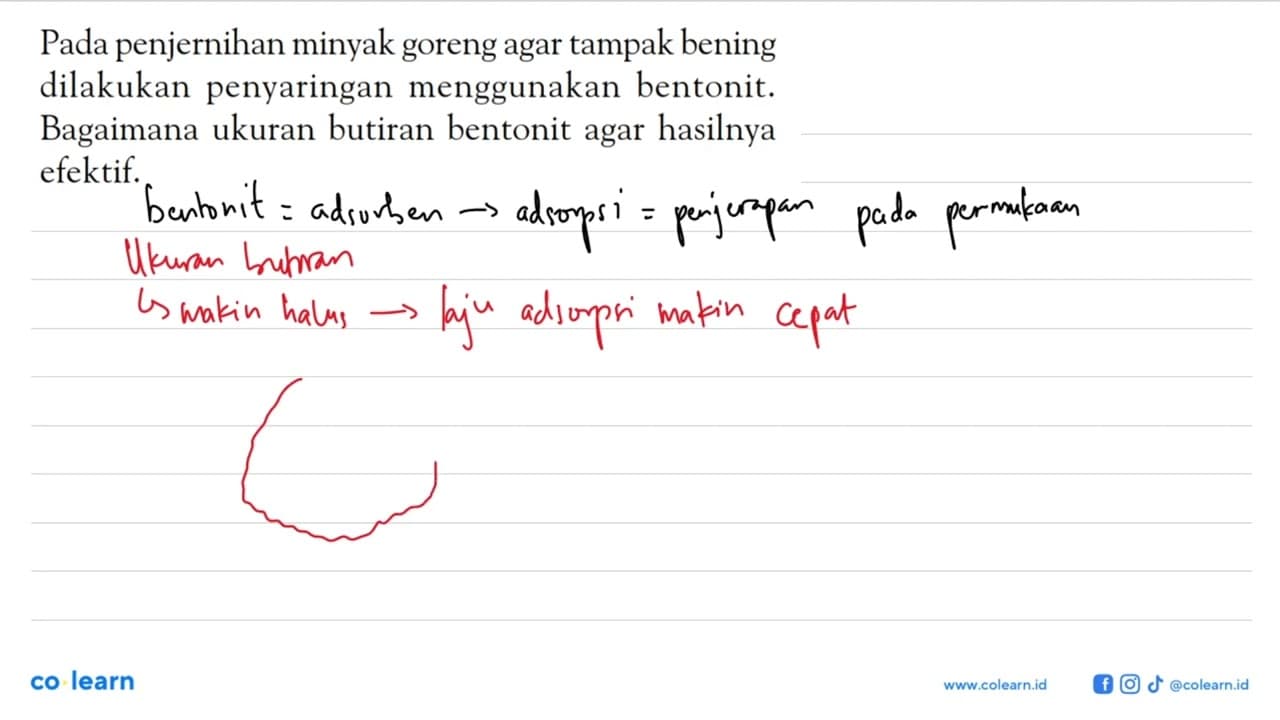 Pada penjernihan minyak goreng agar tampak bening
dilakukan penyaringan menggunakan bentonit.
Bagaimana ukuran butiran bentonit agar hasilnya
efektif.
bentonit = adsorben → adsorpsi = penjerapan pada permukaan
Ukuran butiran
↳ makin halus → laju adsorpsi makin cepat
co learn
www.colearn.id @colearn.id